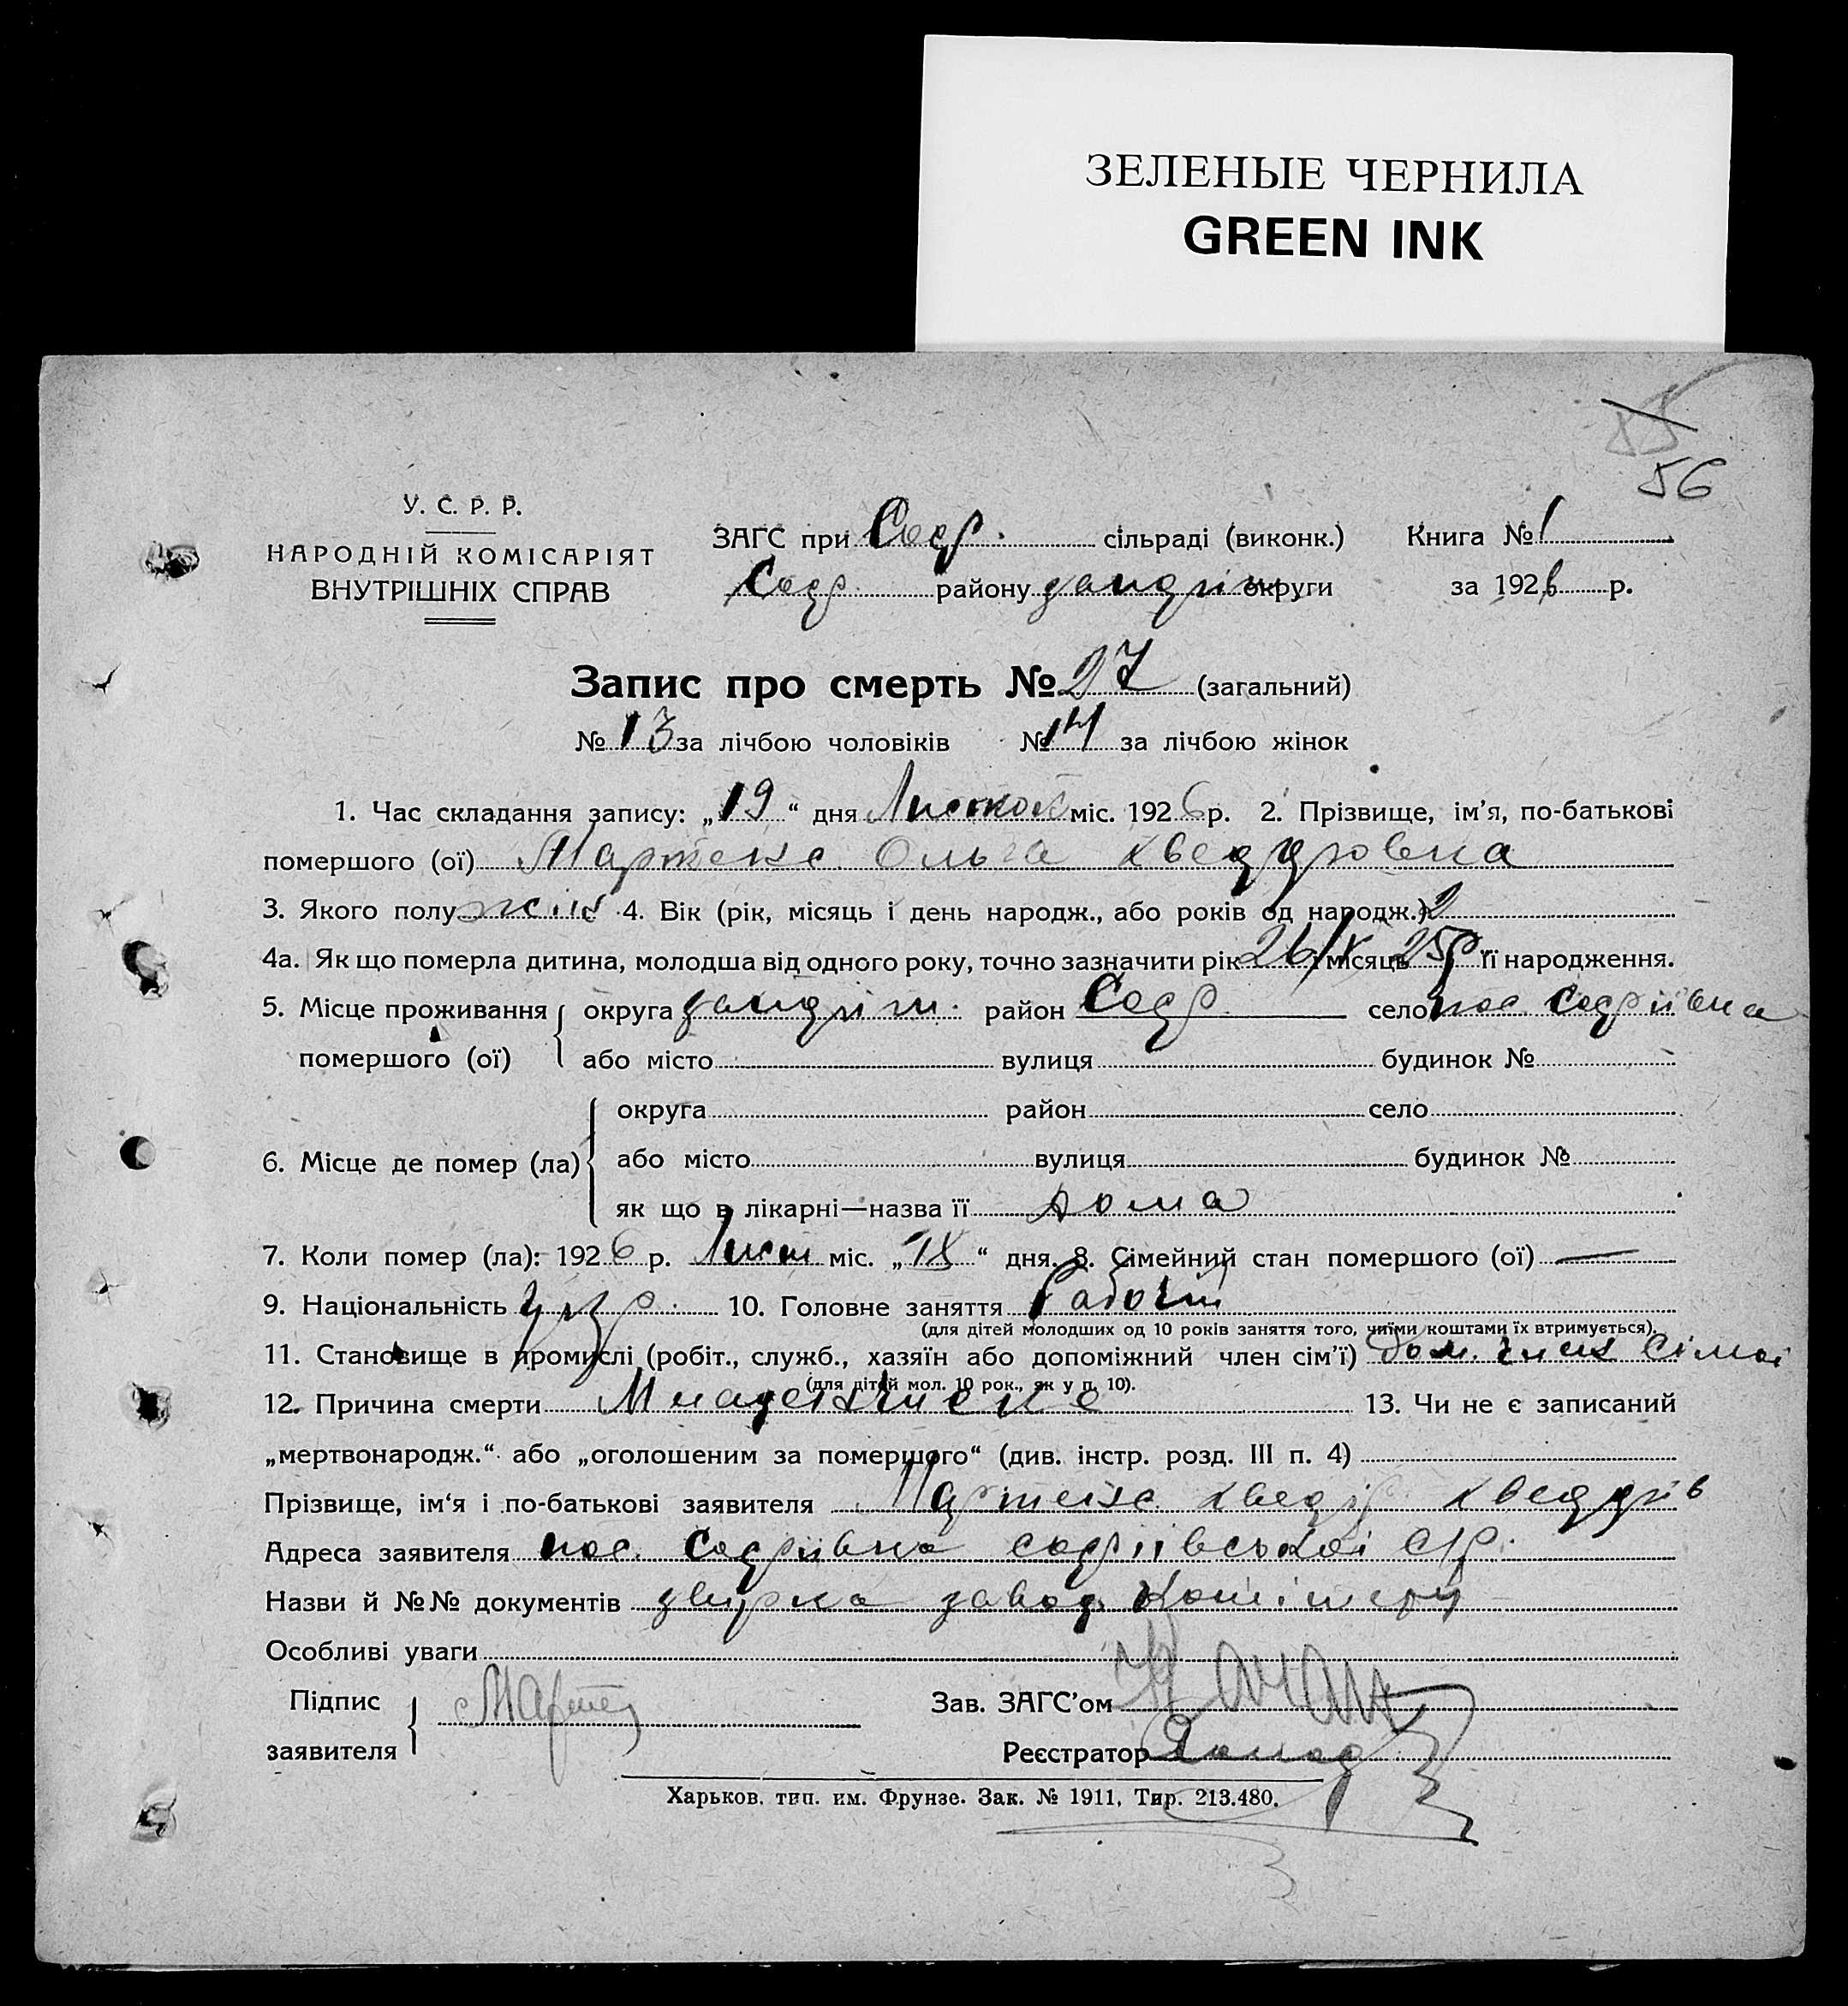 ЗЕЛЕНЫЕ ЧЕРНИЛА
GREEN INK
56
У. С. Р. Р.
НАРОДНІЙ КОМІСАРІЯТ
ВНУТРІШНІХ СПРАВ
ЗАГС при Содр. сільраді (виконк.) Книга № 1
Содр. району округи за 1926 р.
Запис про смерть № 27 (загальний)
№ 13 за лічбою чоловіків № 14 за лічбою жінок
1. Час складання запису: „19“ дня Листоп міс. 1926 р. 2. Прізвище, ім’я, по-батькові
помершого (ої) Мартенс Ольга
3. Якого полу жін 4. Вік (рік, місяць і день народж., або років од народж.) 2
4а. Як що померла дитина, молодша від одного року, точно зазначити рік місяць 25р її народження.
5. Місце проживання помершого (ої) округа район Содр. село пос. Содріївка
або місто вулиця будинок №
6. Місце де помер (ла) округа район село
або місто вулиця будинок №
як що в лікарні—назва її дома
7. Коли помер (ла): 1926 р. Лист міс. „18“ дня. 8. Сімейний стан помершого (ої) —
9. Національність 10. Головне заняття Рабочий
(для дітей молодших од 10 років заняття того, чиїми коштами їх втримується).
11. Становище в промислі (робіт., служб., хазяїн або допоміжний член сім’ї) доп. член сімї
(для дітей мол. 10 рок., як у п. 10).
12. Причина смерти 13. Чи не є записаний
„мертвонародж.“ або „оголошеним за помершого“ (див. інстр. розд. III п. 4)
Прізвище, ім‘я і по-батькові заявителя Мартенс
Адреса заявителя пос. Содріївка содріївської с/р.
Назви й №№ документів завод.
Особливі уваги
Підпис заявителя Мартенс
Зав. ЗАГС’ом
Реєстратор
Харьков. тип. им. Фрунзе. Зак. № 1911, Тир. 213.480.